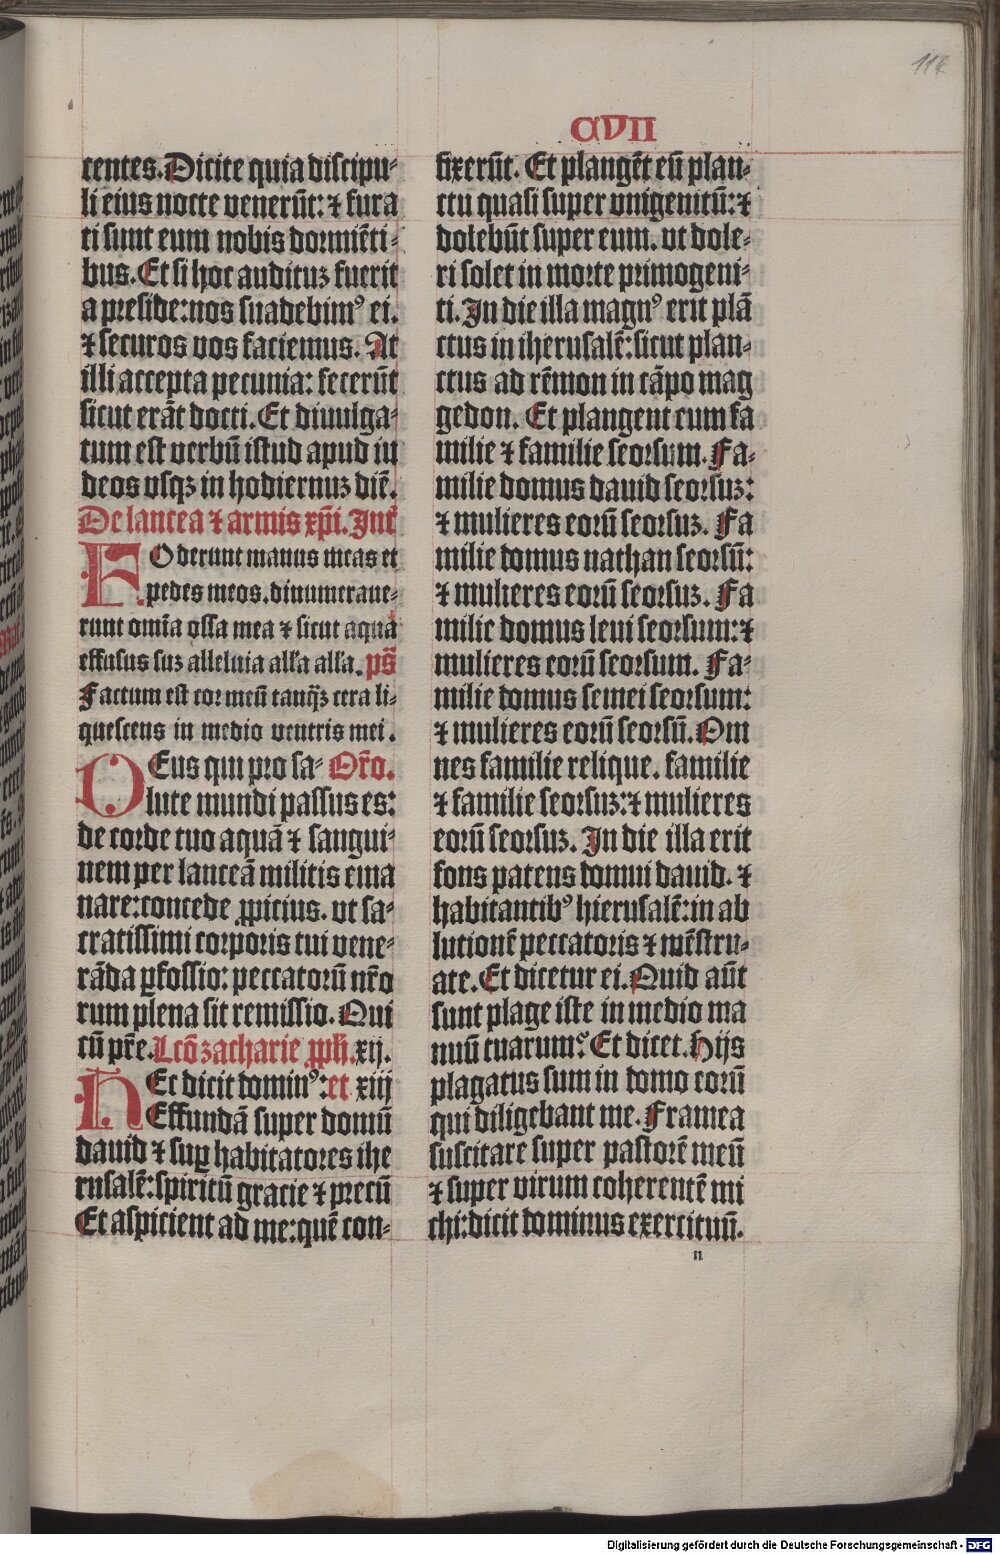 116
CVII
centes. Dicite quia discipu-
li eius nocte venerūt: ⁊ fura
ti sunt eum nobis dormiēti-
bus. Et si hoc audituꝫ fuerit
a preside: nos suadebimꝰ ei.
⁊ securos vos faciemus. At
illi accepta pecunia: fecerūt
sicut erāt docti. Et diuulga-
tum est verbū istud apud iu
deos vsqꝫ in hodiernuꝫ diē.
De lancea ⁊ armis xp̄i. Int̄
FOderunt manus meas et
pedes meos. dinumeraue-
runt om̄ia ossa mea ⁊ sicut aqua
effusus suꝫ alleluia all'a all'a. ps̄
Factum est cor meū tanqꝫ̄ cera li-
quescens in medio ventris mei.
DEus qui pro sa- Or̄o.
lute mundi passus es:
de corde tuo aquā ⁊ sangui-
nem per lanceā militis ema
nare: concede ꝓpicius. vt sa-
cratissimi corporis tui vene-
rāda ꝑfossio: peccatorū nr̄o
rum plena sit remissio. Qui
cū pr̄e. Lcō zacharie ꝓph̄. xij.
HEc dicit dominꝰ: et xiij
Effundā super domū
dauid ⁊ suꝑ habitatores ihe
rusalē: spiritū gracie ⁊ precū
Et aspicient ad me: quē con-
fixerūt. Et plangēt eū plan-
ctu quasi super vnigenitū: ⁊
dolebūt super eum. vt dole-
ri solet in morte primogeni-
ti. In die illa magnꝰ erit plā
ctus in iherusalē: sicut plan-
ctus ad rēmon in cāpo mag
gedon. Et plangent eum fa
milie ⁊ familie seorsum. Fa-
milie domus dauid seorsuꝫ:
⁊ mulieres eorū seorsuꝫ. Fa
milie domus nathan seorsū:
⁊ mulieres eorū seorsuꝫ. Fa
milie domus leui seorsum: ⁊
mulieres eorū seorsum. Fa-
milie domus semei seorsum:
⁊ mulieres eorū seorsū. Om
nes familie relique. familie
⁊ familie seorsuꝫ: ⁊ mulieres
eorū seorsuꝫ. In die illa erit
fons patens domui dauid. ⁊
habitantibꝰ hierusalē: in ab
lutionē peccatoris ⁊ mēstru-
ate. Et dicetur ei. Quid aūt
sunt plage iste in medio ma
nuū tuarum? Et dicet. Hijs
plagatus sum in domo eorū
qui diligebant me. Framea
suscitare super pastorē meū
⁊ super virum coherentē mi
chi: dicit dominus exercituū.
n
Digitalisierung gefördert durch die Deutsche Forschungsgemeinschaft - DFG